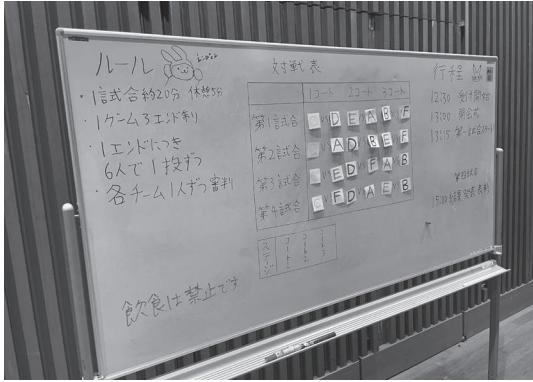 ルール
・1試合約20分 休憩5分
・1ゲーム3エンド制
・1エンドにつき
6人で1投ずつ
・各チーム1人ずつ審判
飲食は禁止です
対戦表
1コート 2コート 3コート
第1試合 C D E A B F
第2試合 C A D B E F
第3試合 C E D F A B
第4試合 C F D A E B
ステージ
コート1
コート2
コート3
行程
12:30 受付開始
13:00 開会式
13:15 第一試合スタート
15:00 結果発表 表彰